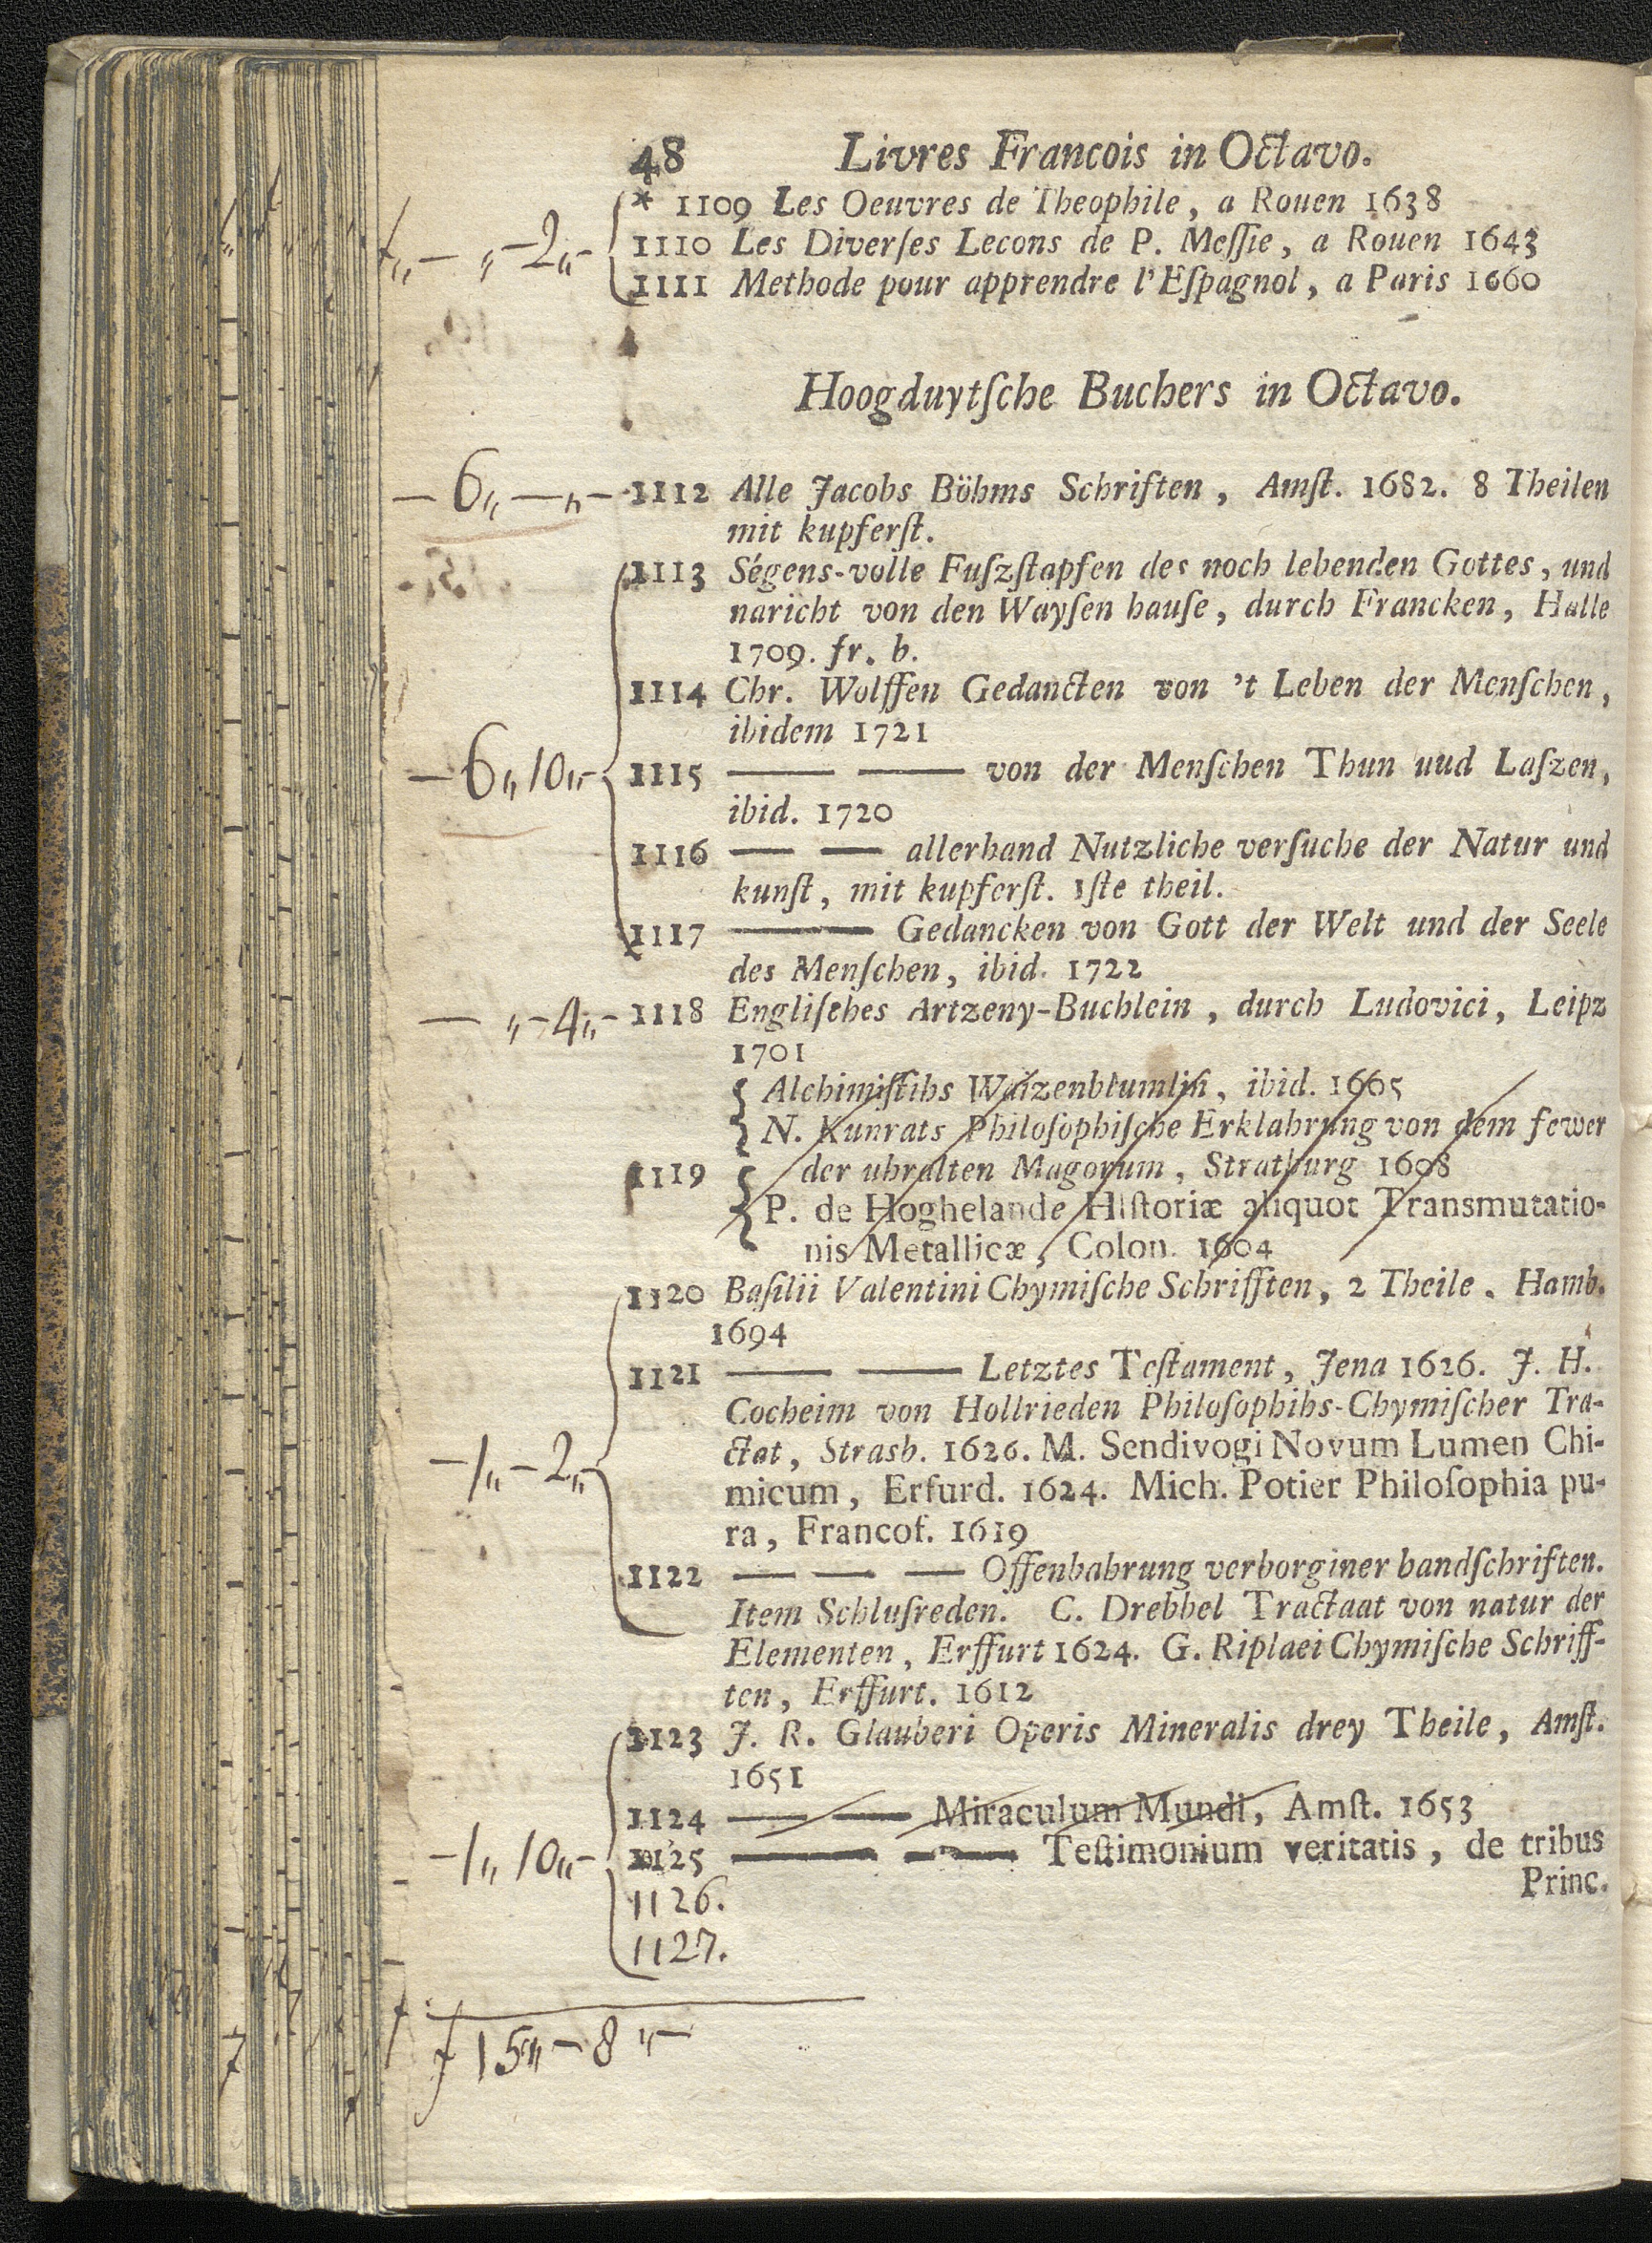 48 Livres Francois in Octavo.
* 1109 Les Oeuvres de Theophile, a Rouen 1638
ƒ „ — „ - 2 „ - 1110 Les Diverſes Lecons de P. Meſſie, a Rouen 1643
1111 Methode pour apprendre l'Eſpagnol, a Paris 1660
Hoogduytſche Buchers in Octavo.
— 6 „ — „ - 1112 Alle Jacobs Böhms Schriften, Amſt. 1682. 8 Theilen
mit kupferſt.
1113 Ségens-volle Fuſzſtapfen des noch lebenden Gottes, und
naricht von den Wayſen hauſe, durch Francken, Halle
1709. fr. b.
1114 Chr. Wolffen Gedancten von 't Leben der Menſchen,
ibidem 1721
— 6 „ 10 „ - 1115 —— —— von der Menſchen Thun uud Laſzen,
ibid. 1720
1116 —— —— allerhand Nutzliche verſuche der Natur und
kunſt, mit kupferſt. 1ſte theil.
1117 ——— Gedancken von Gott der Welt und der Seele
des Menſchen, ibid. 1722
— „ - 4 „ - 1118 Engliſches Artzeny-Buchlein, durch Ludovici, Leipz
1701
Alchimiſtihs Waizenblumlin, ibid. 1605
N. Kunrats Philoſophiſche Erklahrung von dem fewer
1119 der uhralten Magorum, Stratburg 1608
P. de Hoghelande Hiſtoriæ aliquot Transmutatio-
nis Metallicæ, Colon. 1604
1120 Baſilii Valentini Chymiſche Schrifften, 2 Theile. Hamb.
1694
1121 —— —— Letztes Teſtament, Jena 1626. J. H.
Cocheim von Hollrieden Philoſophihs-Chymiſcher Tra-
ctat, Strasb. 1626. M. Sendivogi Novum Lumen Chi-
— 1 „ - 2 „ - micum, Erfurd. 1624. Mich. Potier Philoſophia pu-
ra, Francof. 1619
1122 — — — Offenbahrung verborginer handſchriften.
Item Schluſreden. C. Drebbel Tractaat von natur der
Elementen, Erffurt 1624. G. Riplaei Chymiſche Schriff-
ten, Erffurt. 1612
1123 J. R. Glauberi Operis Mineralis drey Theile, Amſt.
1651
1124 —— —— Miraculum Mundi, Amſt. 1653
— 1 „ 10 „ - 1125 —— —— Teſtimonium veritatis, de tribus
Princ.
1126.
1127.
ƒ 15 „ - 8 „ -